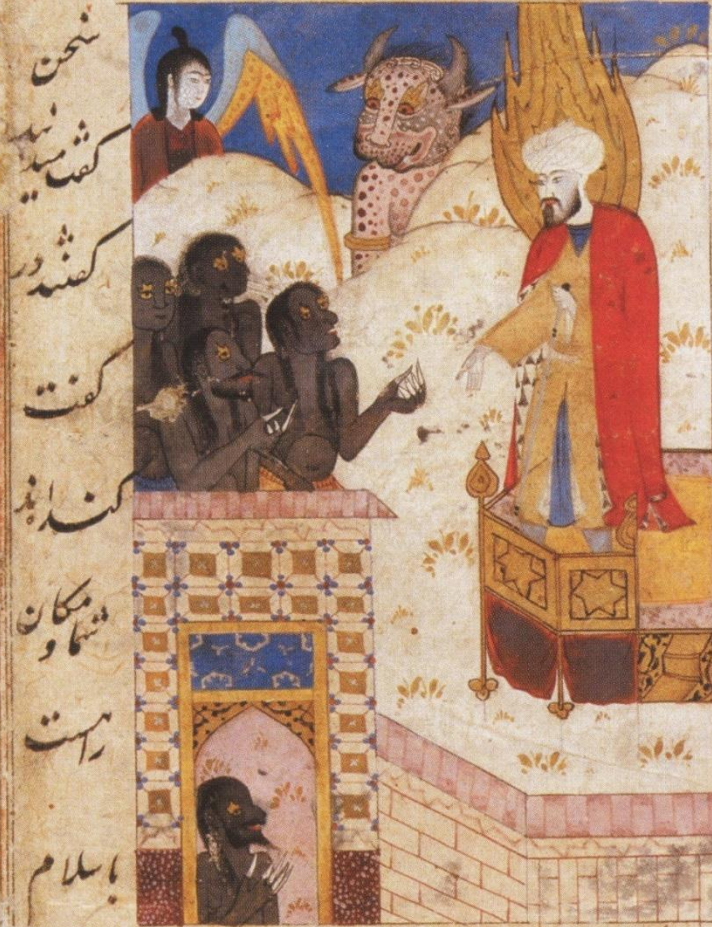 سخن
اند
گفتا میدا
گفتند در
گفت
کنداند
شما و مکان
راهست
باسلام